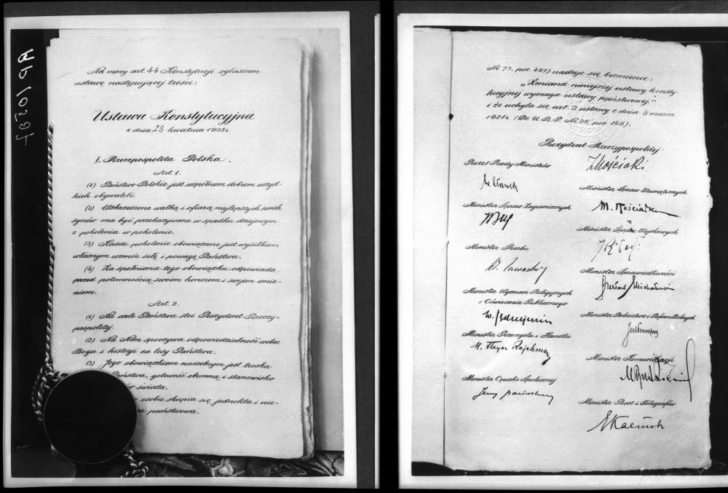 Na mocy art. 44 Konstytucji ogłaszam
ustawę następującej treści:
Ustawa Konstytucyjna
z dnia 23 kwietnia 1935 r.
I. Rzeczpospolita Polska.
Art. 1.
(1) Państwo Polskie jest wspólnem dobrem wszyst-
kich obywateli.
(2) Wskrzeszone walką i ofiarą najlepszych swoich
synów ma być przekazywane w spadku dziejowym
z pokolenia w pokolenie.
(3) Każde pokolenie obowiązane jest wysiłkiem
własnym wzmóc siłę i powagę Państwa.
(4) Za spełnienie tego obowiązku odpowiada
przed potomnością swoim honorem i swojem imie-
niem.
Art. 2.
(1) Na czele Państwa stoi Prezydent Rzeczy-
pospolitej.
(2) Na Nim spoczywa odpowiedzialność wobec
Boga i historji za losy Państwa.
(3) Jego obowiązkiem naczelnym jest troska
Państwa, gotowość obronną i stanowisko
świata.
osobie skupia się jednolita i nie-
państwowa.
Nr. 73, poz. 497) nadaje się brzmienie:
"Zmiana niniejszej ustawy konsty-
tucyjnej wymaga ustawy państwowej"
i że uchyla się art. 3 ustawy z dnia
1921 r. (Dz. U. R. P.
Prezydent Rzeczypospolitej
I Mościcki
Prezes Rady Ministrów
W Sławek
Minister Spraw Wewnętrznych
M. Kościałkowski
Minister Spraw Zagranicznych
Minister Spraw Wojskowych
Minister Skarbu
Wł. Zawadzki
Minister Sprawiedliwości
Czesław Michałowski
Minister Wyznań Religijnych
i Oświecenia Publicznego
W. Jędrzejewicz
Minister Rolnictwa i Reform Rolnych
Minister Przemysłu i Handlu
H. Floyar Rajchman
Minister Komunikacji
Minister Opieki Społecznej
Jerzy Paciorkowski
Minister Poczt i Telegrafów
E Kaliński